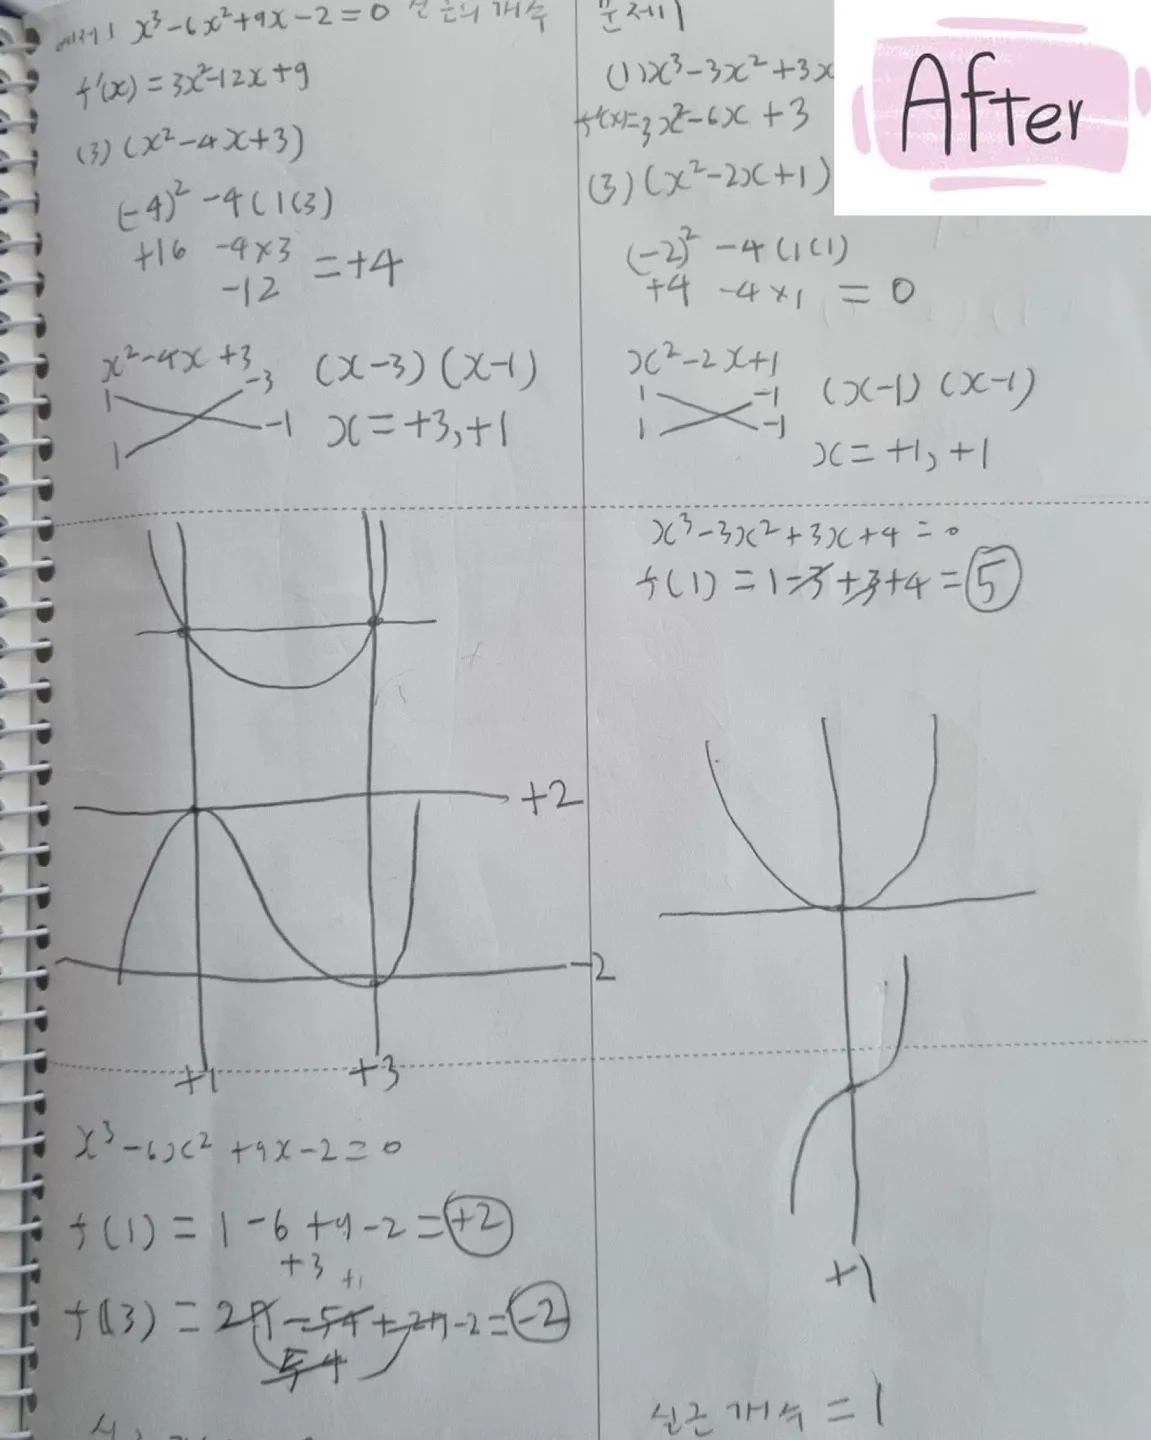 예제1 x³-6x²+9x-2=0 실근의 개수
f'(x)=3x²-12x+9
(3)(x²-4x+3)
(-4)²-4(1(3)
+16 -4×3
-12 =+4
x²-4x+3
1 -3
1 -1
(x-3)(x-1)
x=+3,+1
+2
-2
+1 +3
x³-6x²+9x-2=0
f(1)=1-6+9-2=+2
+3 +1
f(3)=27-54+27-2=-2
54
문제1
(1)x³-3x²+3x
f'(x)=3x²-6x+3
(3)(x²-2x+1)
(-2)²-4(1(1)
+4 -4×1 =0
x²-2x+1
1 -1
1 -1
(x-1)(x-1)
x=+1,+1
x³-3x²+3x+4=0
f(1)=1-3+3+4=5
+1
실근 개수=1
After